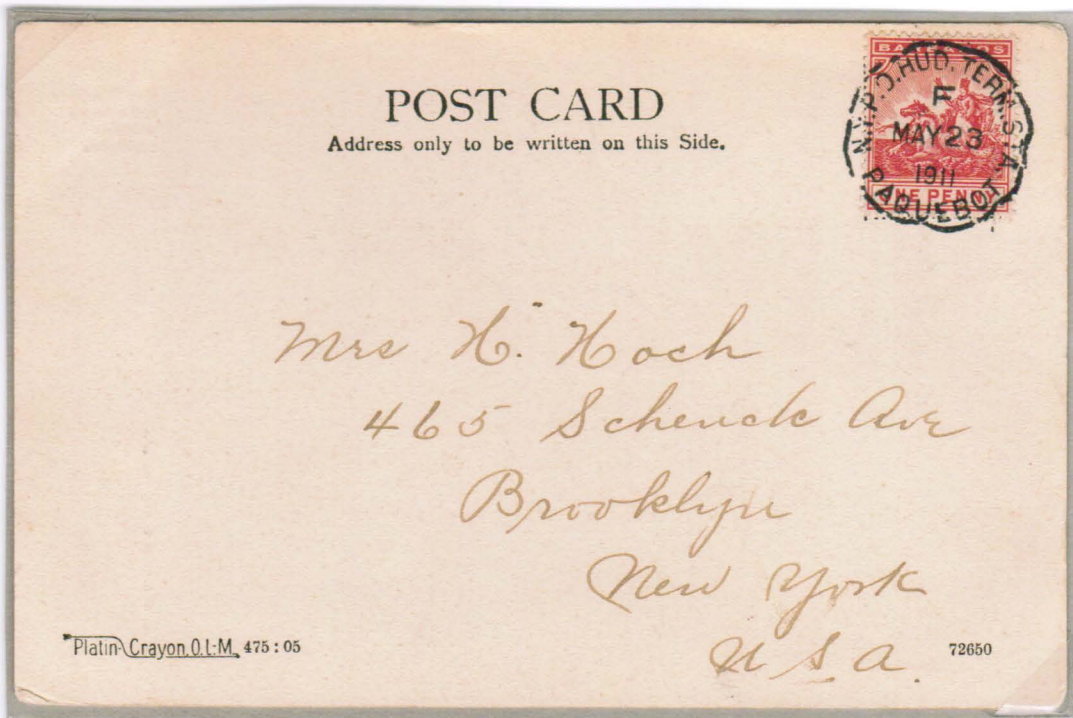 POST CARD
Address only to be written on this Side.
BARBADOS
N.Y.P.O. HUD. TERM. STA.
F
MAY 23
1911
PAQUEBOT
ONE PENNY
Mrs H. Hoch
465 Schenck Ave
Brooklyn
New York
U S A.
Platin-Crayon. O.L.M. 475 : 05
72650